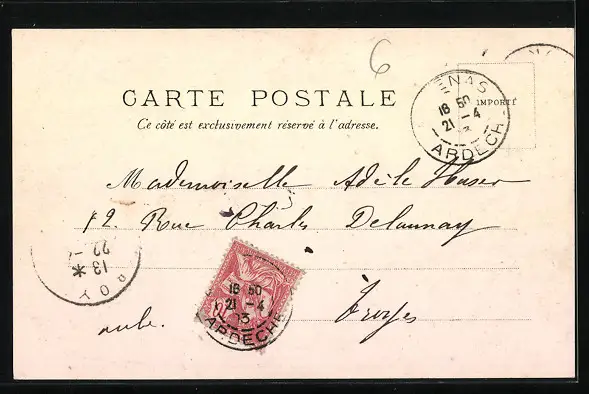 6
CARTE POSTALE
Ce côté est exclusivement réservé à l'adresse.
ENAS
18 50
21 -4
ARDECH
IMPORTÉ
Mademoiselle Adèle
12. Rue Charles Delaunay
Troyes
aube.
18 50
21 -4
03
ARDECHE
13 *
22 -
OY